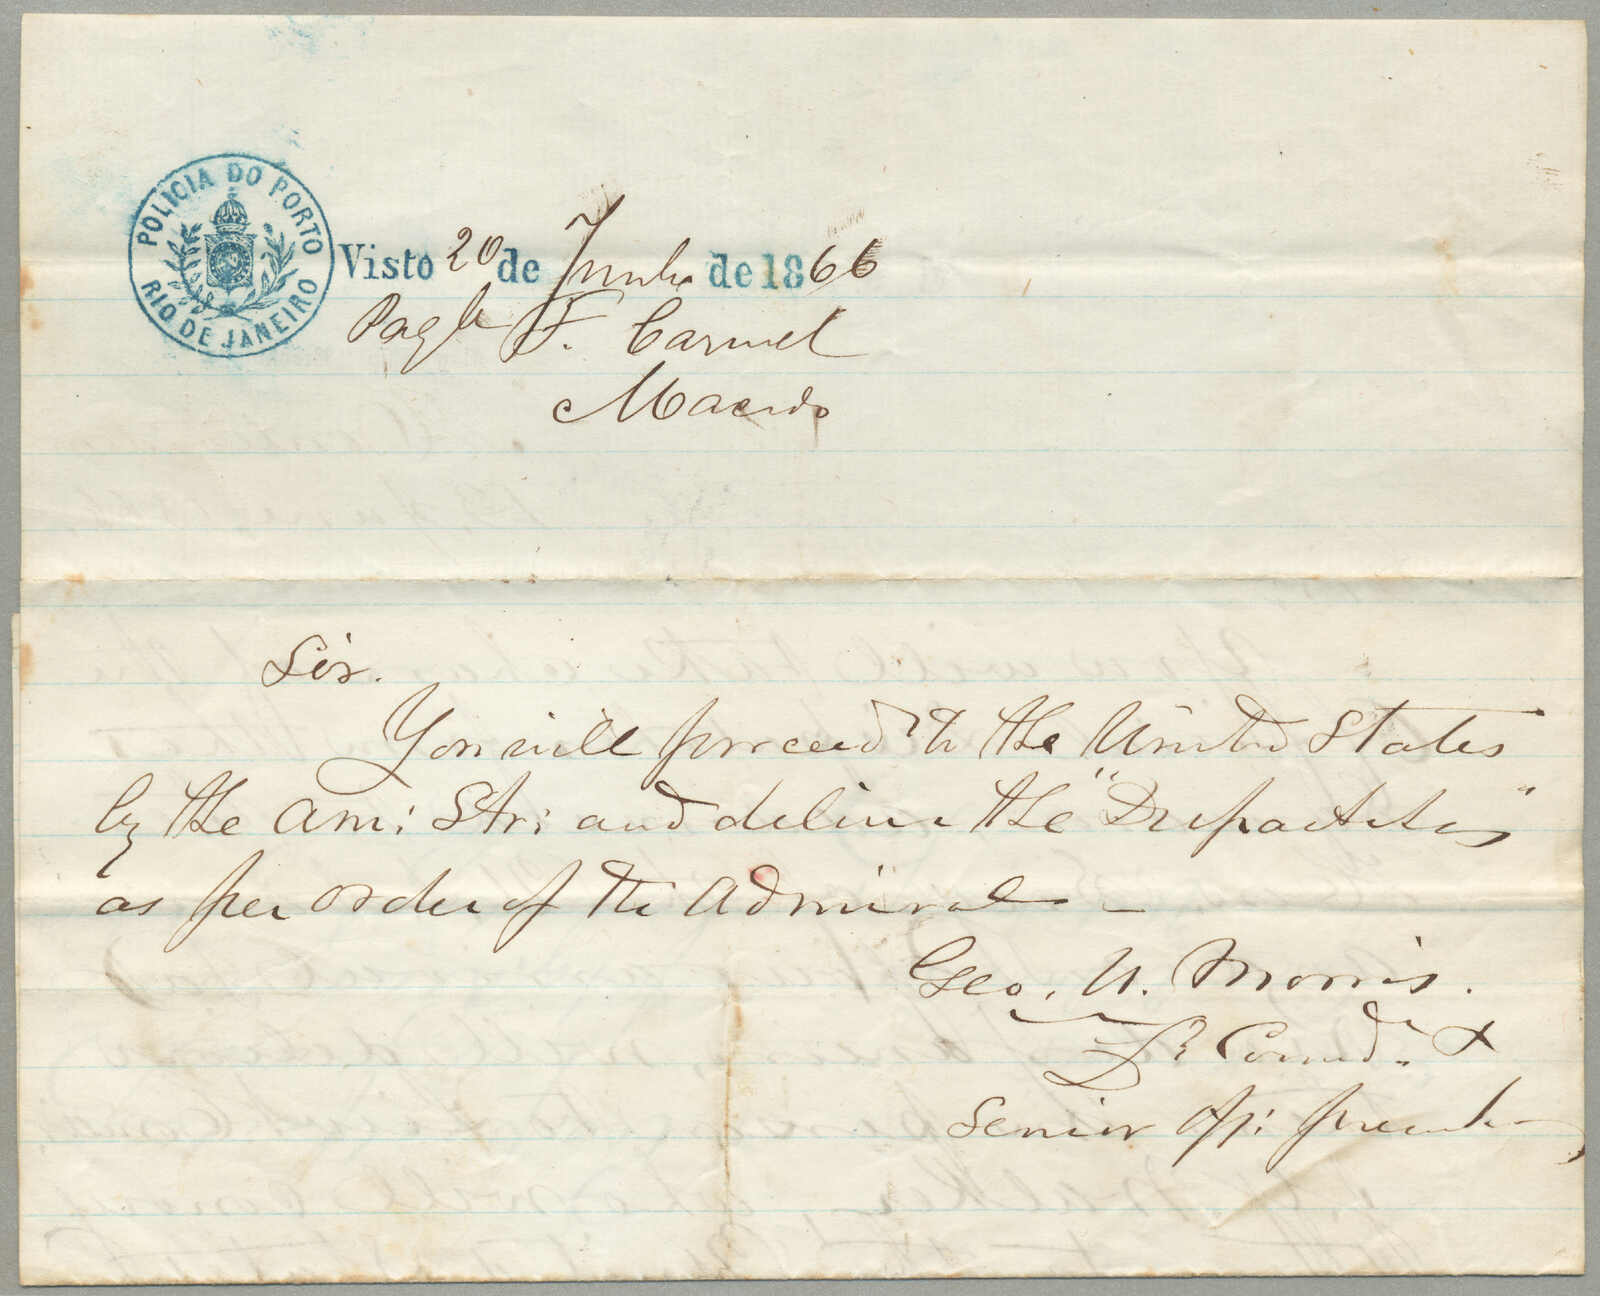 POLICIA DO PORTO
RIO DE JANEIRO
Visto 20 de Junho de 1866
F. Carmel
Macedo
Sir.
You will proceed to the United States
by the Am: Str: and deliver the "Despatches"
as per order of the Admiral
Geo. U. Morris.
Lt Comd. &
Senior Off: present